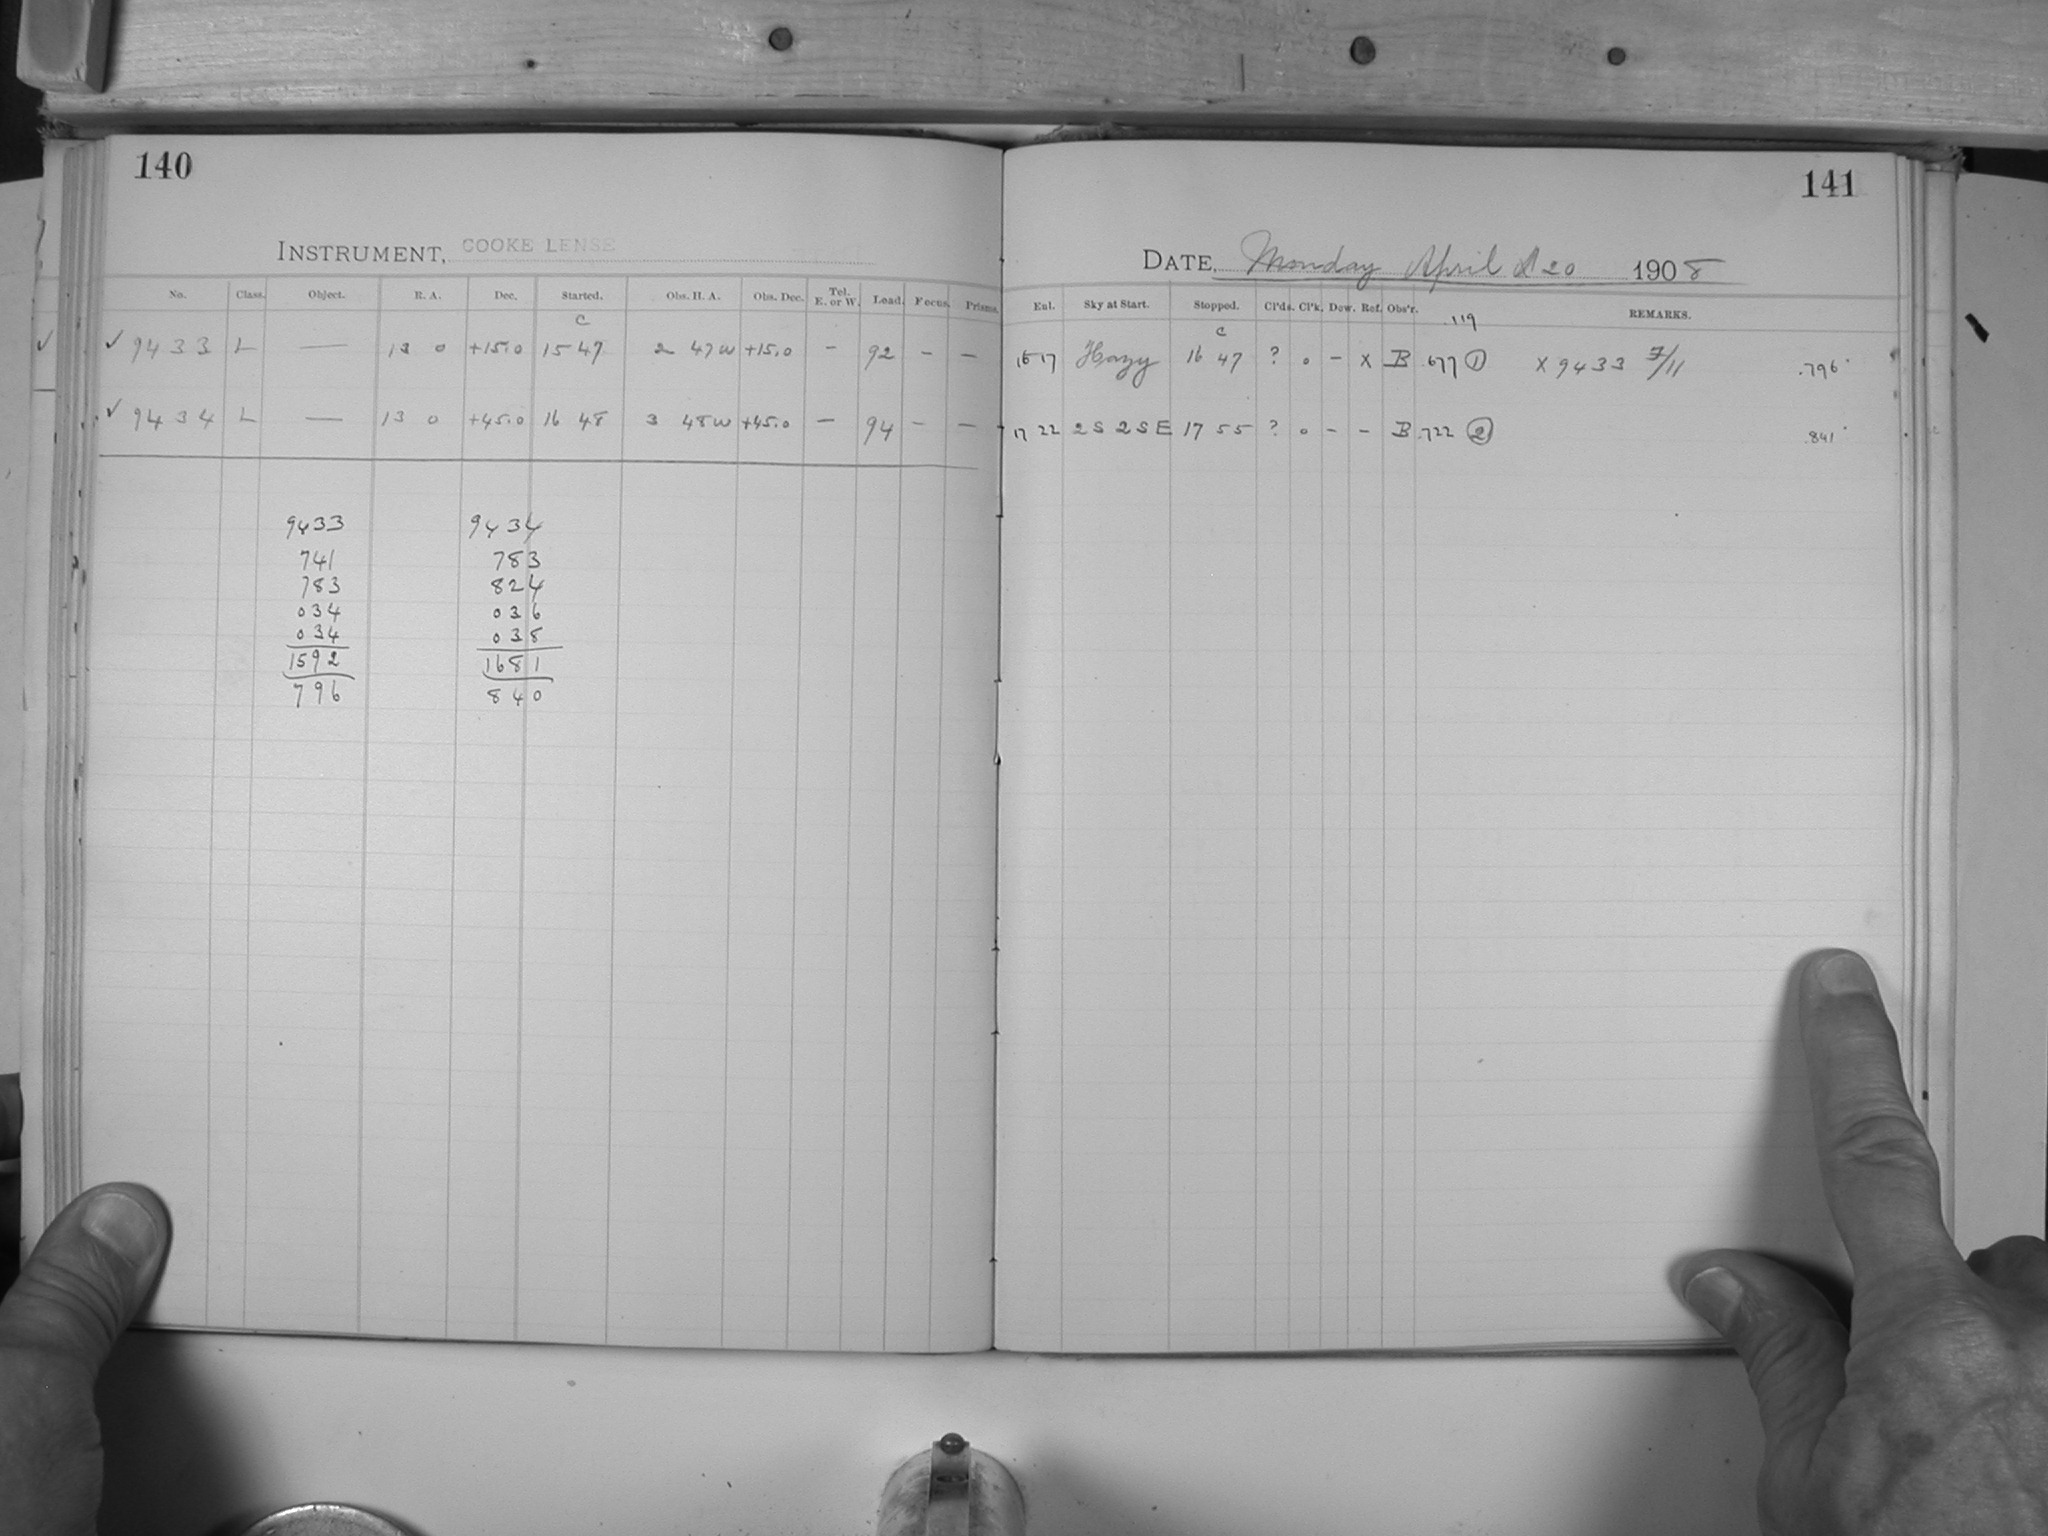 140
INSTRUMENT, COOKE LENSE
No. Class. Object. R. A. Dec. Started. Obs. H. A. Obs. Dec. Tel. E. or W. Load. Focus. Prisms.
c
✓ 9433 L — 13 0 +15.0 15 47 2 47 W +15.0 – 92 – –
✓ 9434 L — 13 0 +45.0 16 48 3 48 W +45.0 – 94 – –
9433 9434
741 783
783 824
034 036
034 038
1592 1681
796 840
141
DATE, Monday April 20 1908
Enl. Sky at Start. Stopped. Cl'ds. Cl'k. Dew. Ref. Obs'r. REMARKS.
.119
c
16 17 Hazy 16 47 ? 0 – X B .677 ① X 9433 7/11 .796
17 22 2S 2SE 17 55 ? 0 – – B .722 ② .841